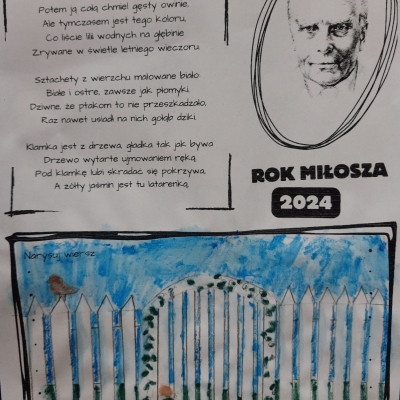 Potem ją całą chmiel gęsty owinie,
Ale tymczasem jest tego koloru,
Co liście lilii wodnych na głębinie
Zrywane w świetle letniego wieczoru.
Sztachety z wierzchu malowane biało.
Białe i ostre, zawsze jak płomyki.
Dziwne, że ptakom to nie przeszkadzało,
Raz nawet usiadł na nich gołąb dziki.
Klamka jest z drzewa, gładka tak, jak bywa
Drzewo wytarte ujmowaniem ręką.
Pod klamkę lubi skradać się pokrzywa,
A żółty jaśmin jest tu latarenką.
ROK MIŁOSZA
2024
Narysuj wiersz: